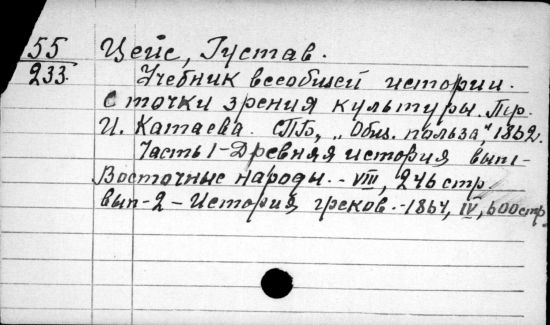 55 Цейс, Густав.
233. Учебник всеобщей истории.
С точки зрения культуры. Пер.
И. Катаева. СПБ, „Общ. польза", 1862.
Часть I - Древняя история вып 1 -
Восточные народы. - VIII, 246 стр
вып - 2 - История греков. - 1864, IV, 600 стр